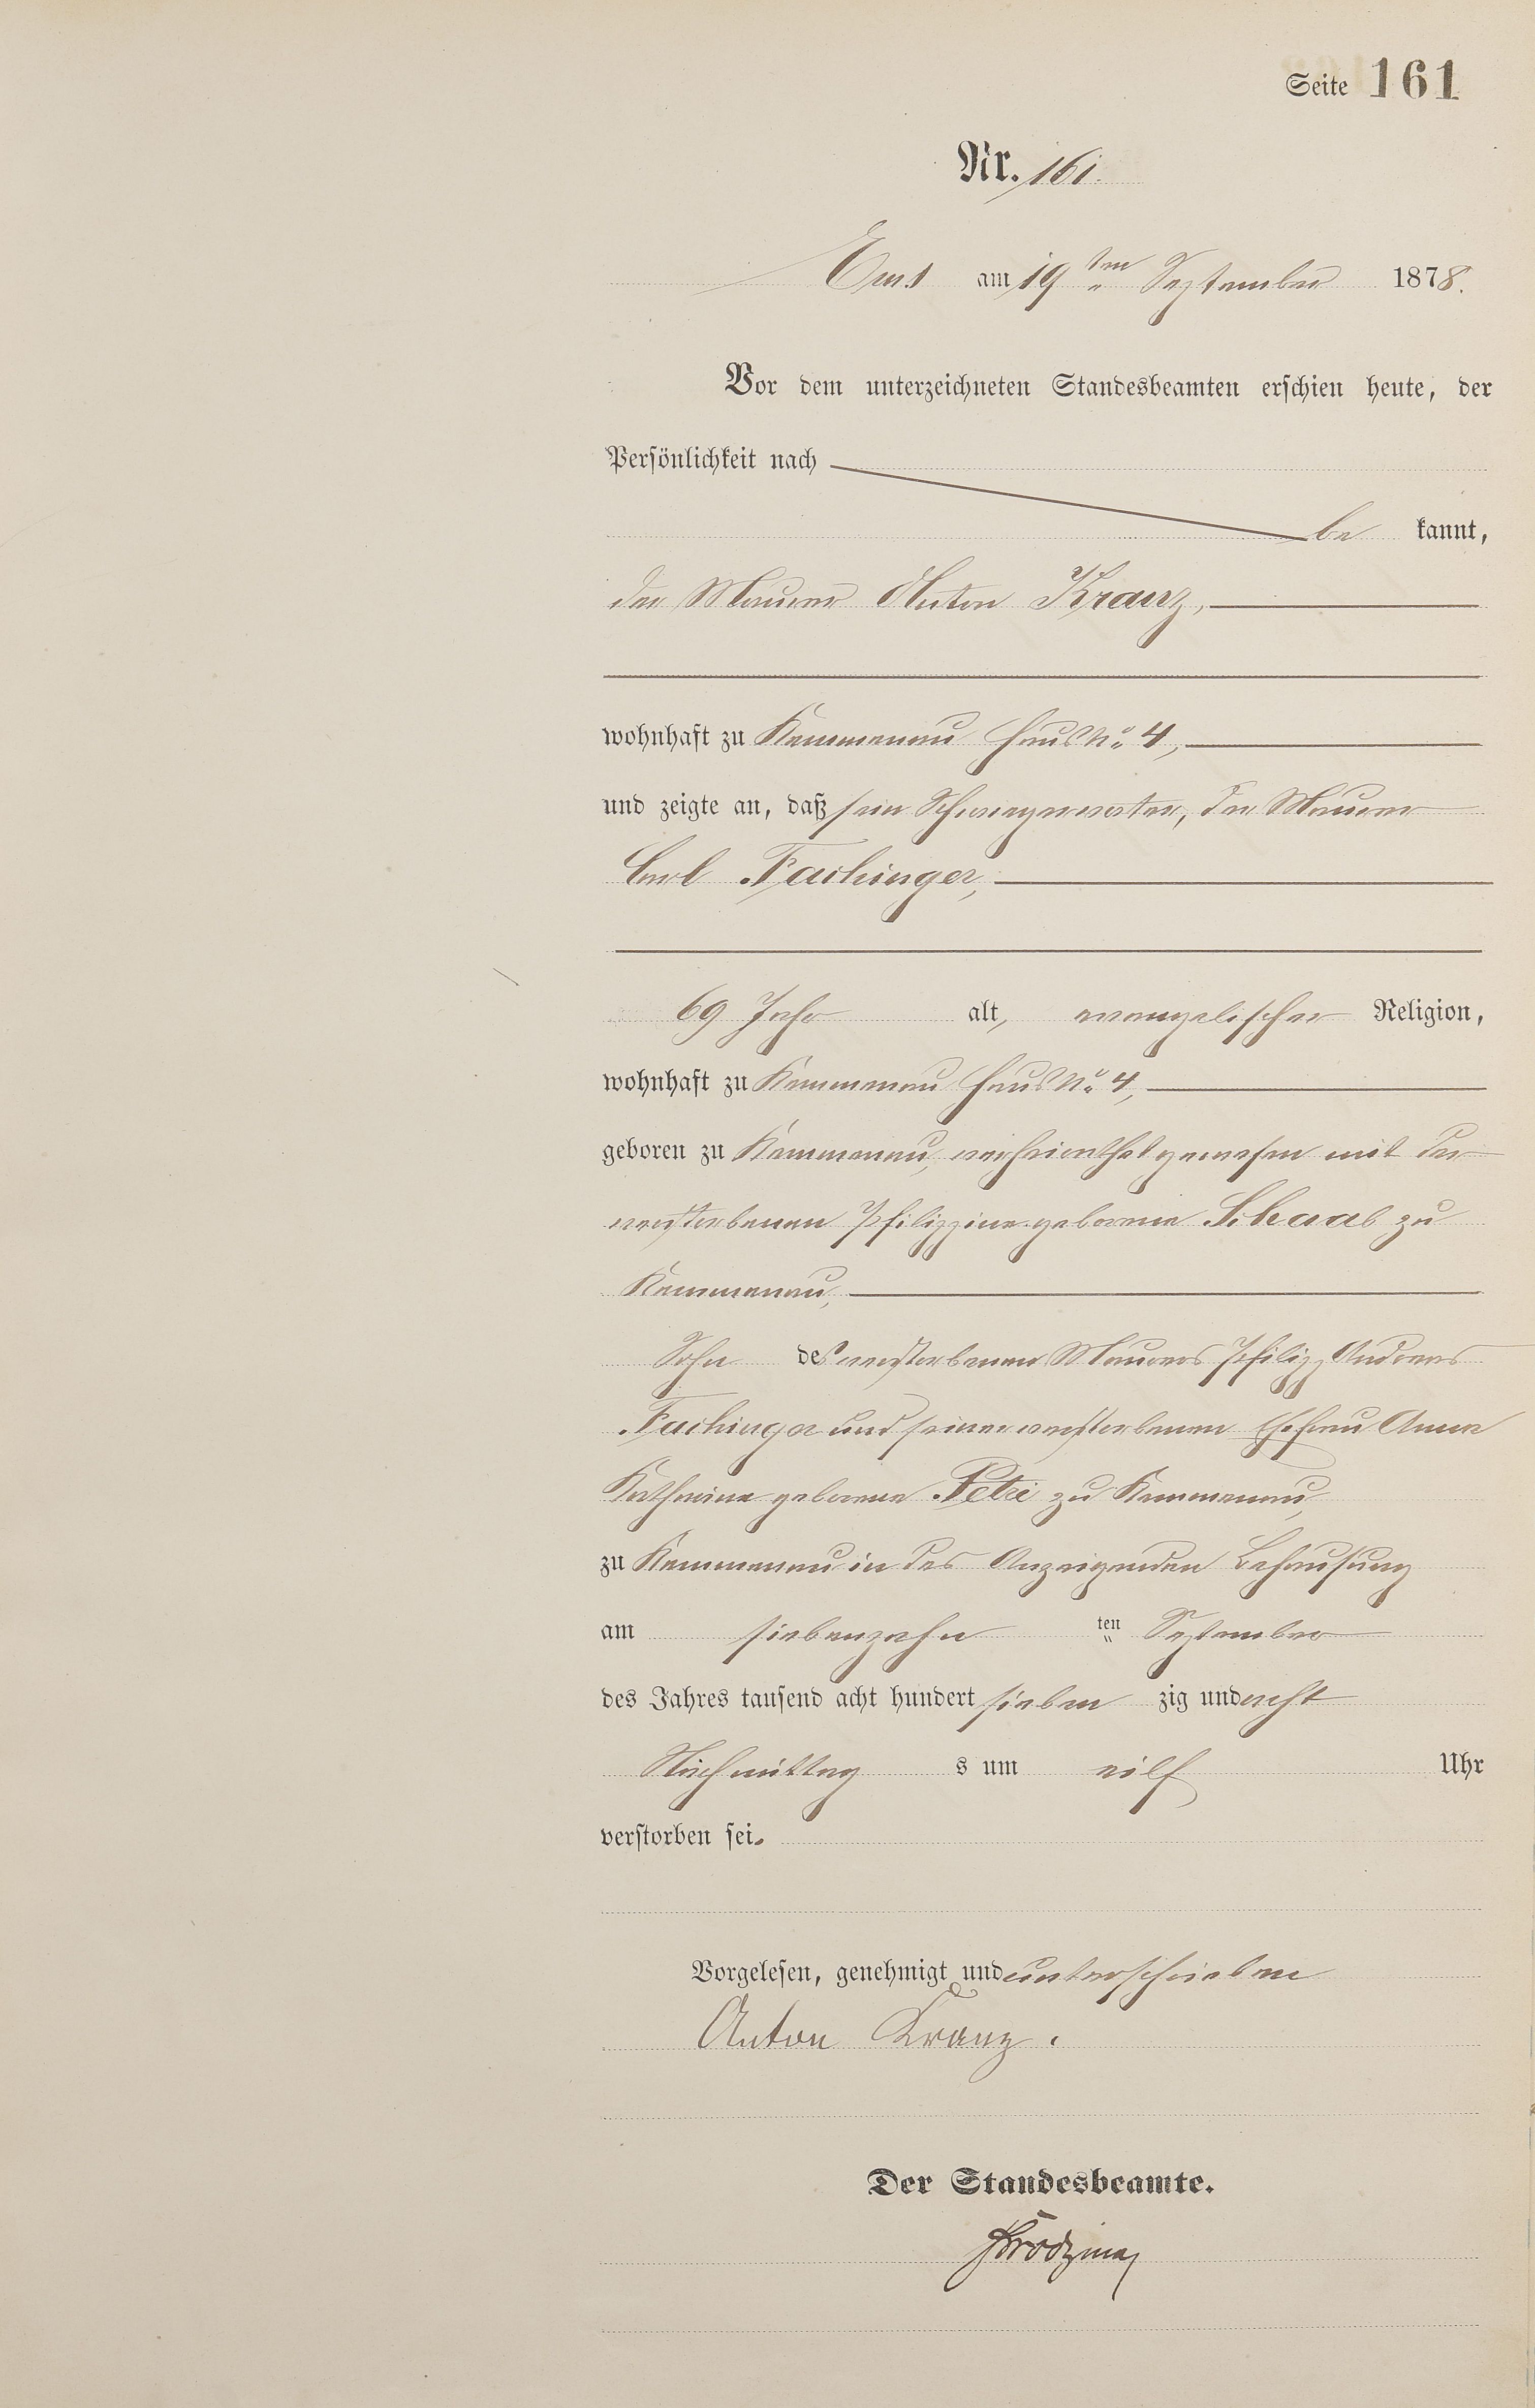 Seite 161
Nr. 161.
Ems am 19ten September 1878.
Vor dem unterzeichneten Standesbeamten erschien heute, der
Persönlichkeit nach
be kannt,
der Maurer Anton Kranz,
wohnhaft zu Kemmenau Haus No. 4,
und zeigte an, daß sein Schwiegervater, der Maurer
Carl Fachinger,
69 Jahr alt, evangelischer Religion,
wohnhaft zu Kemmenau Haus No. 4,
geboren zu Kemmenau, verheirathet gewesen mit der
verstorbenen Philippine geborene Schaab zu
Kemmenau,
Sohn des verstorbenen Maurers Philipp Andreas
Fachinger und seiner verstorbenen Ehefrau Anna
Katharina geborene Petri zu Kemmenau,
zu Kemmenau in des Anzeigenden Behausung
am siebenzehn ten September
des Jahres tausend acht hundert sieben zig und acht
Nachmittag s um eilf Uhr
verstorben sei.
Vorgelesen, genehmigt und unterschrieben
Anton Kranz.
Der Standesbeamte.